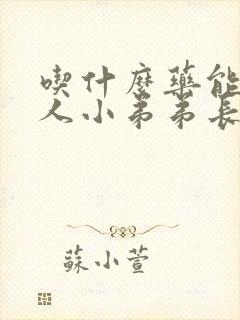 喫什麼藥能
人小弟弟長
蘇小萱